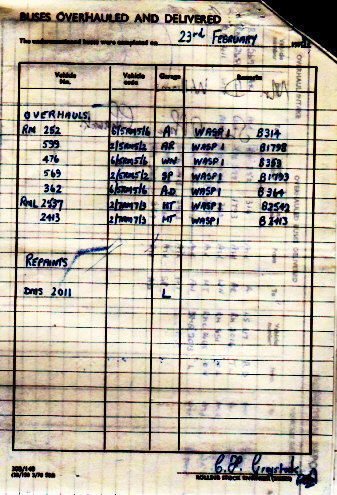 BUSES OVERHAULED AND DELIVERED
The undermentioned buses were completed on 23rd FEBRUARY
Vehicle No. Vehicle code Garage Remarks
OVERHAULS
RM 262 6/5RM5/6 A WASP1 B314
599 2/5RM5/2 AR WASP1 B1798
476 6/5RM5/6 WN WASP1
569 2/5RM5/2 SP WASP1 B1793
362 6/5RM5/6 AD WASP1 B364
RML 2537 2/7RM7/3 WASP1 B2542
2413 2/7RM7/3 HT WASP1 B2413
REPAINTS
DMS 2011 L
ROLLING STOCK